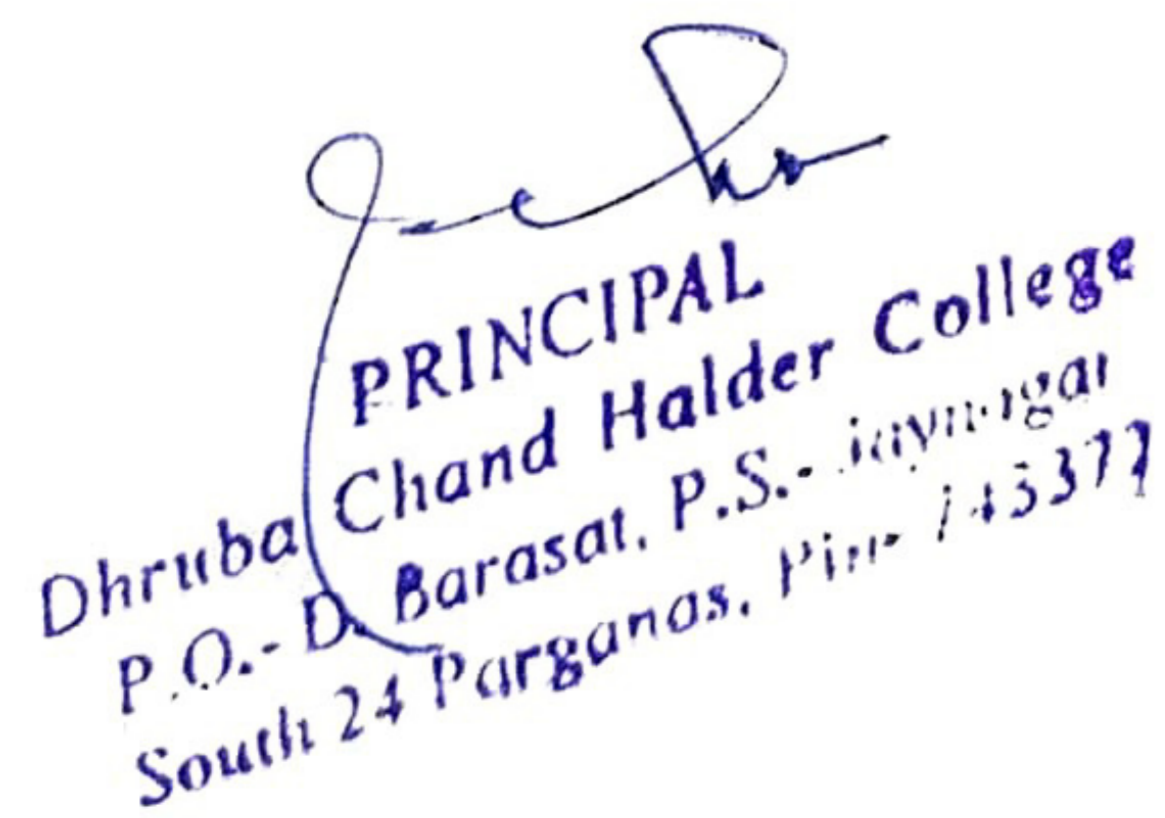 PRINCIPAL
Dhruba Chand Halder College
P.O.- D. Barasat, P.S.- Jaynagar
South 24 Parganas, Pin- 743377